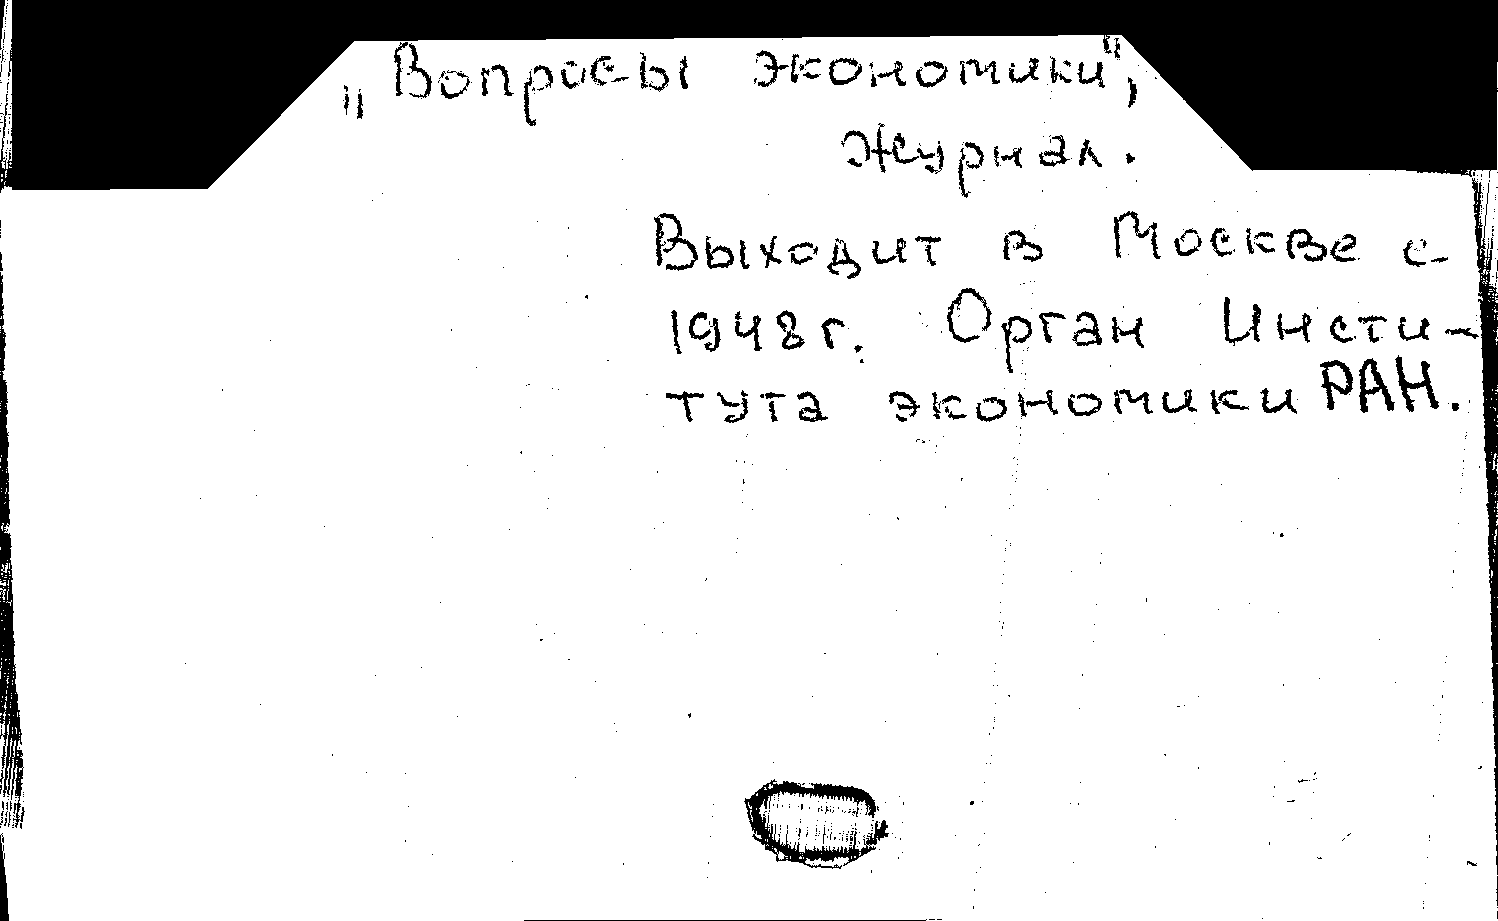 „Вопросы экономики",
журнал.
Выходит в Москве с
1948г. Орган Инсти-
тута экономики РАН.